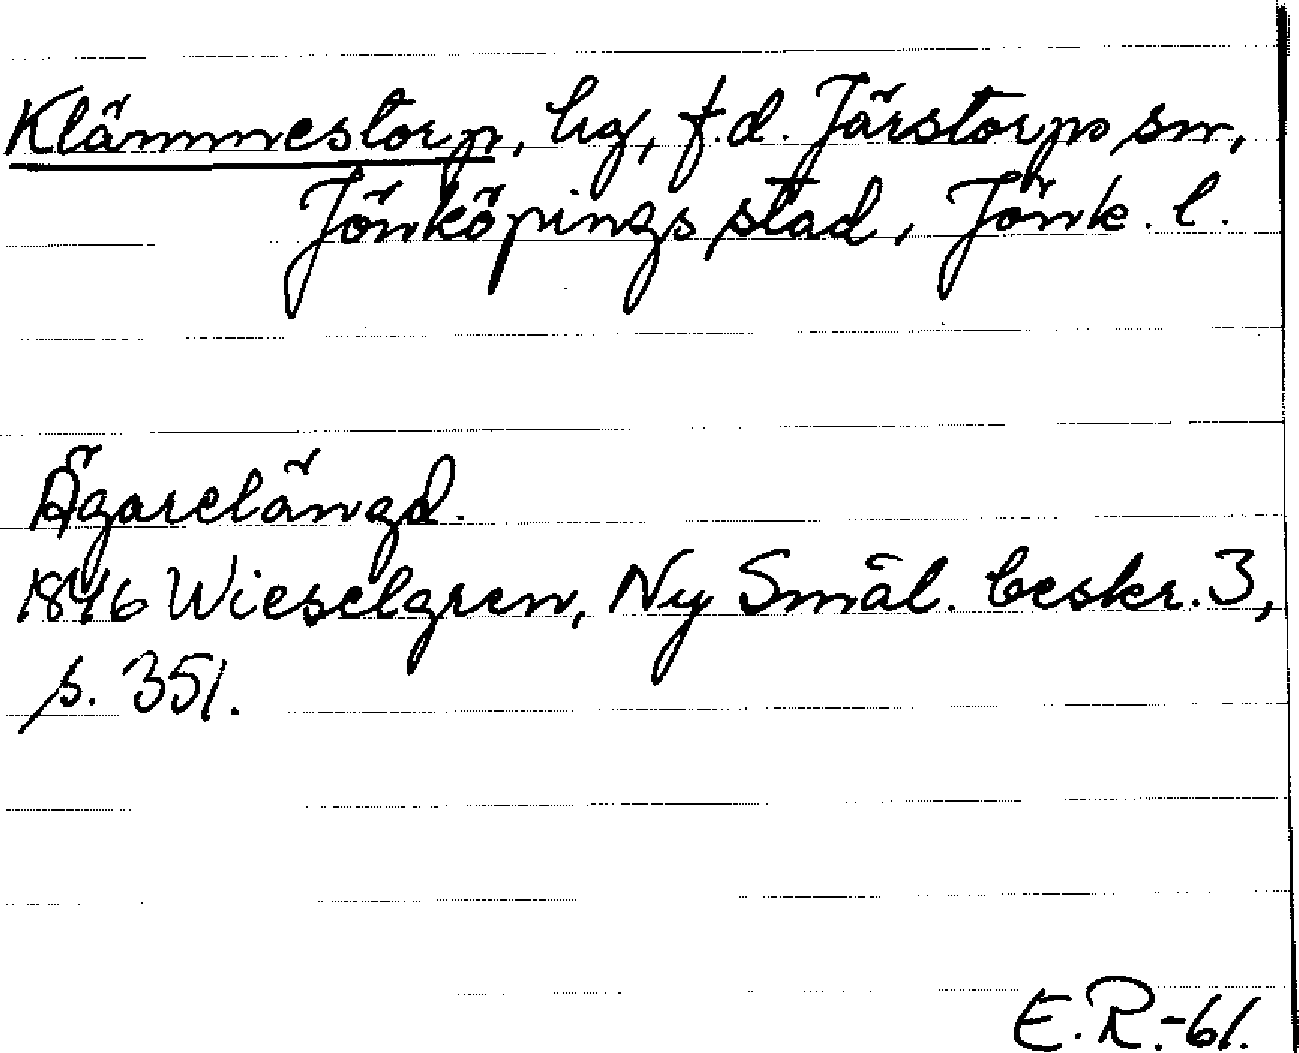 Klämmestorp, hg, f.d. Järstorps sn,
Jönköpings stad, Jönk. l.
Ägarelängd.
1846 Wieselgren, Ny Smål. beskr. 3,
s. 351.
E.R.-61.